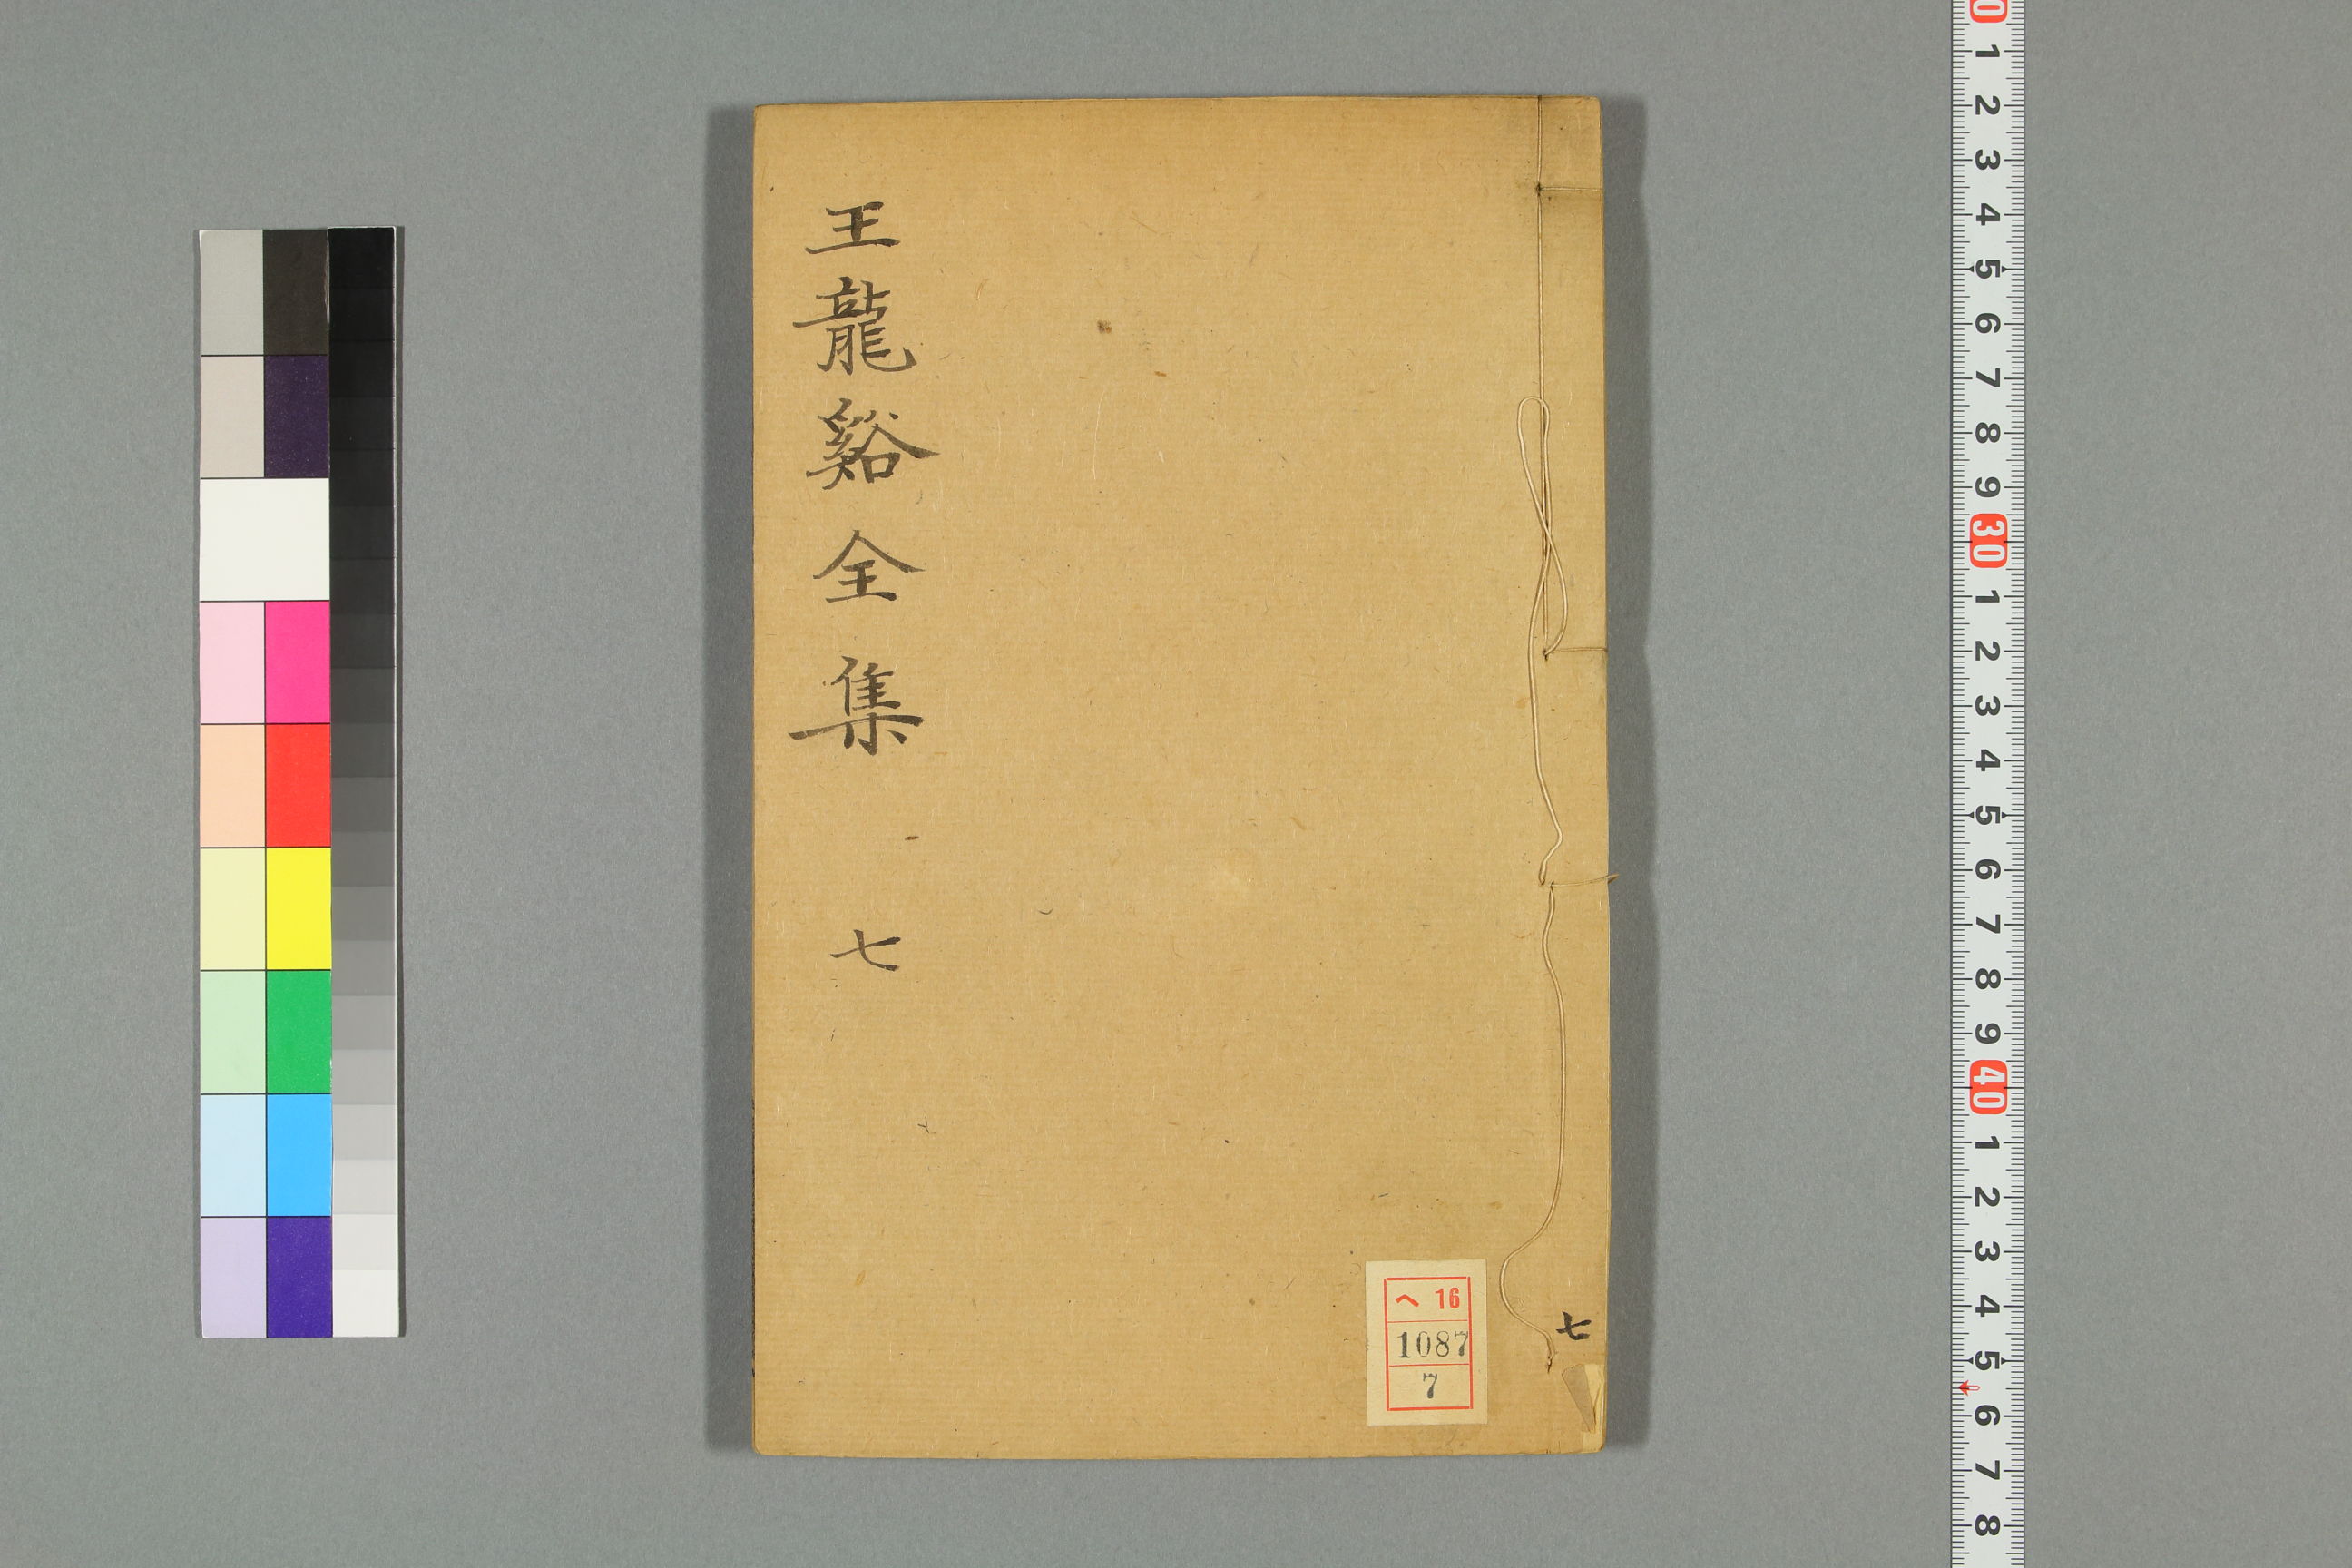 王龍谿全集 七
七
ヘ 16
1087
7
0
1
2
3
4
5
6
7
8
9
30
1
2
3
4
5
6
7
8
9
40
1
2
3
4
5
6
7
8